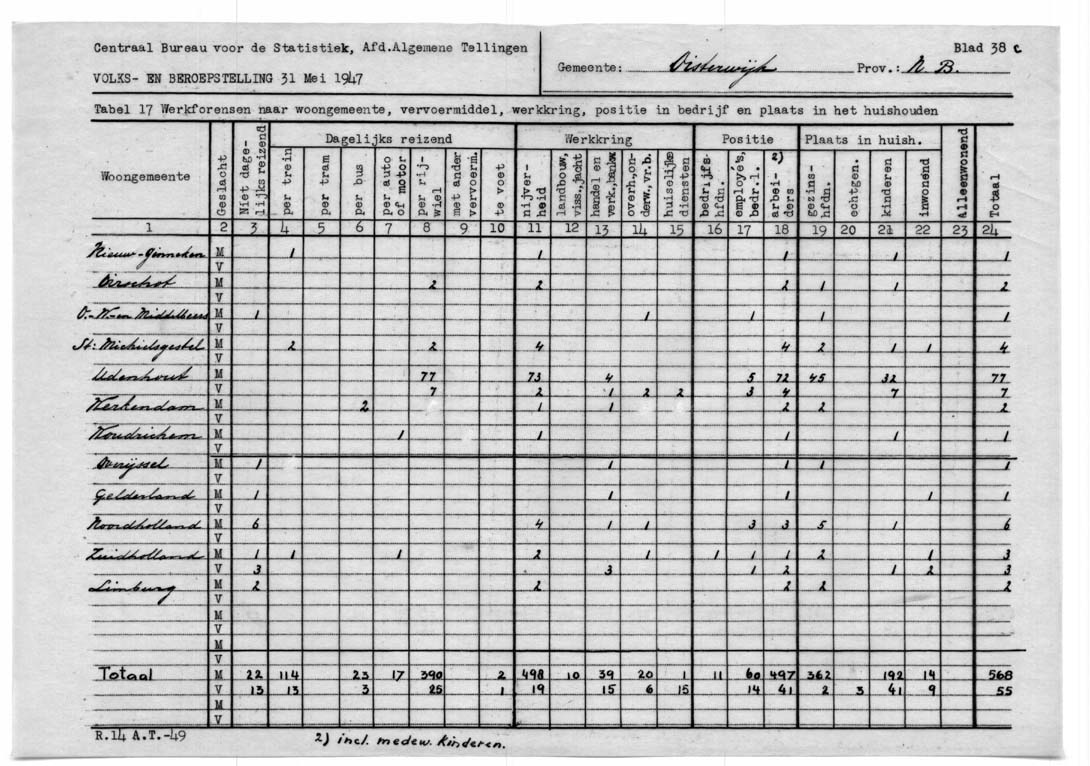 Centraal Bureau voor de Statistiek, Afd.Algemene Tellingen
VOLKS- EN BEROEPSTELLING 31 Mei 1947
Gemeente: Oisterwijk Prov.: N. B.
Blad 38 c
Tabel 17 Werkforensen naar woongemeente, vervoermiddel, werkkring, positie in bedrijf en plaats in het huishouden
Woongemeente Geslacht Niet dage-lijks reizend Dagelijks reizend Werkkring Positie 2) Plaats in huish. Alleenwonend Totaal
per trein per tram per bus per auto of motor per rij-wiel met ander vervoerm. te voet nijver-heid landbouw, viss.,jacht handel en verk.,bankw overh.,on-derw.,vr.b. huiselijke diensten bedrijfs-hfdn. employé's, bedr.l. arbei-ders gezins-hfdn. echtgen. kinderen inwonend
1 2 3 4 5 6 7 8 9 10 11 12 13 14 15 16 17 18 19 20 21 22 23 24
Nieuw-Ginneken M 1 1 1 1 1
V
Oirschot M 2 2 2 1 1 2
V
O.-W.-en Middelbeers M 1 1 1 1 1
V
St: Michielsgestel M 2 2 4 4 2 1 1 4
V
Udenhout M 77 73 4 5 72 45 32 77
V 7 2 1 2 2 3 4 7 7
Werkendam M 2 1 1 2 2 2
V
Woudrichem M 1 1 1 1 1
V
Overijssel M 1 1 1 1 1
V
Gelderland M 1 1 1 1 1
V
Noordholland M 6 4 1 1 3 3 5 1 6
V
Zuidholland M 1 1 1 2 1 1 1 1 2 1 3
V 3 3 1 2 1 2 3
Limburg M 2 2 2 2 2
V
M
V
M
V
Totaal M 22 114 23 17 390 2 498 10 39 20 1 11 60 497 362 192 14 568
V 13 13 3 25 1 19 15 6 15 14 41 2 3 41 9 55
M
V
R.14 A.T.-49
2) incl. medew. kinderen.